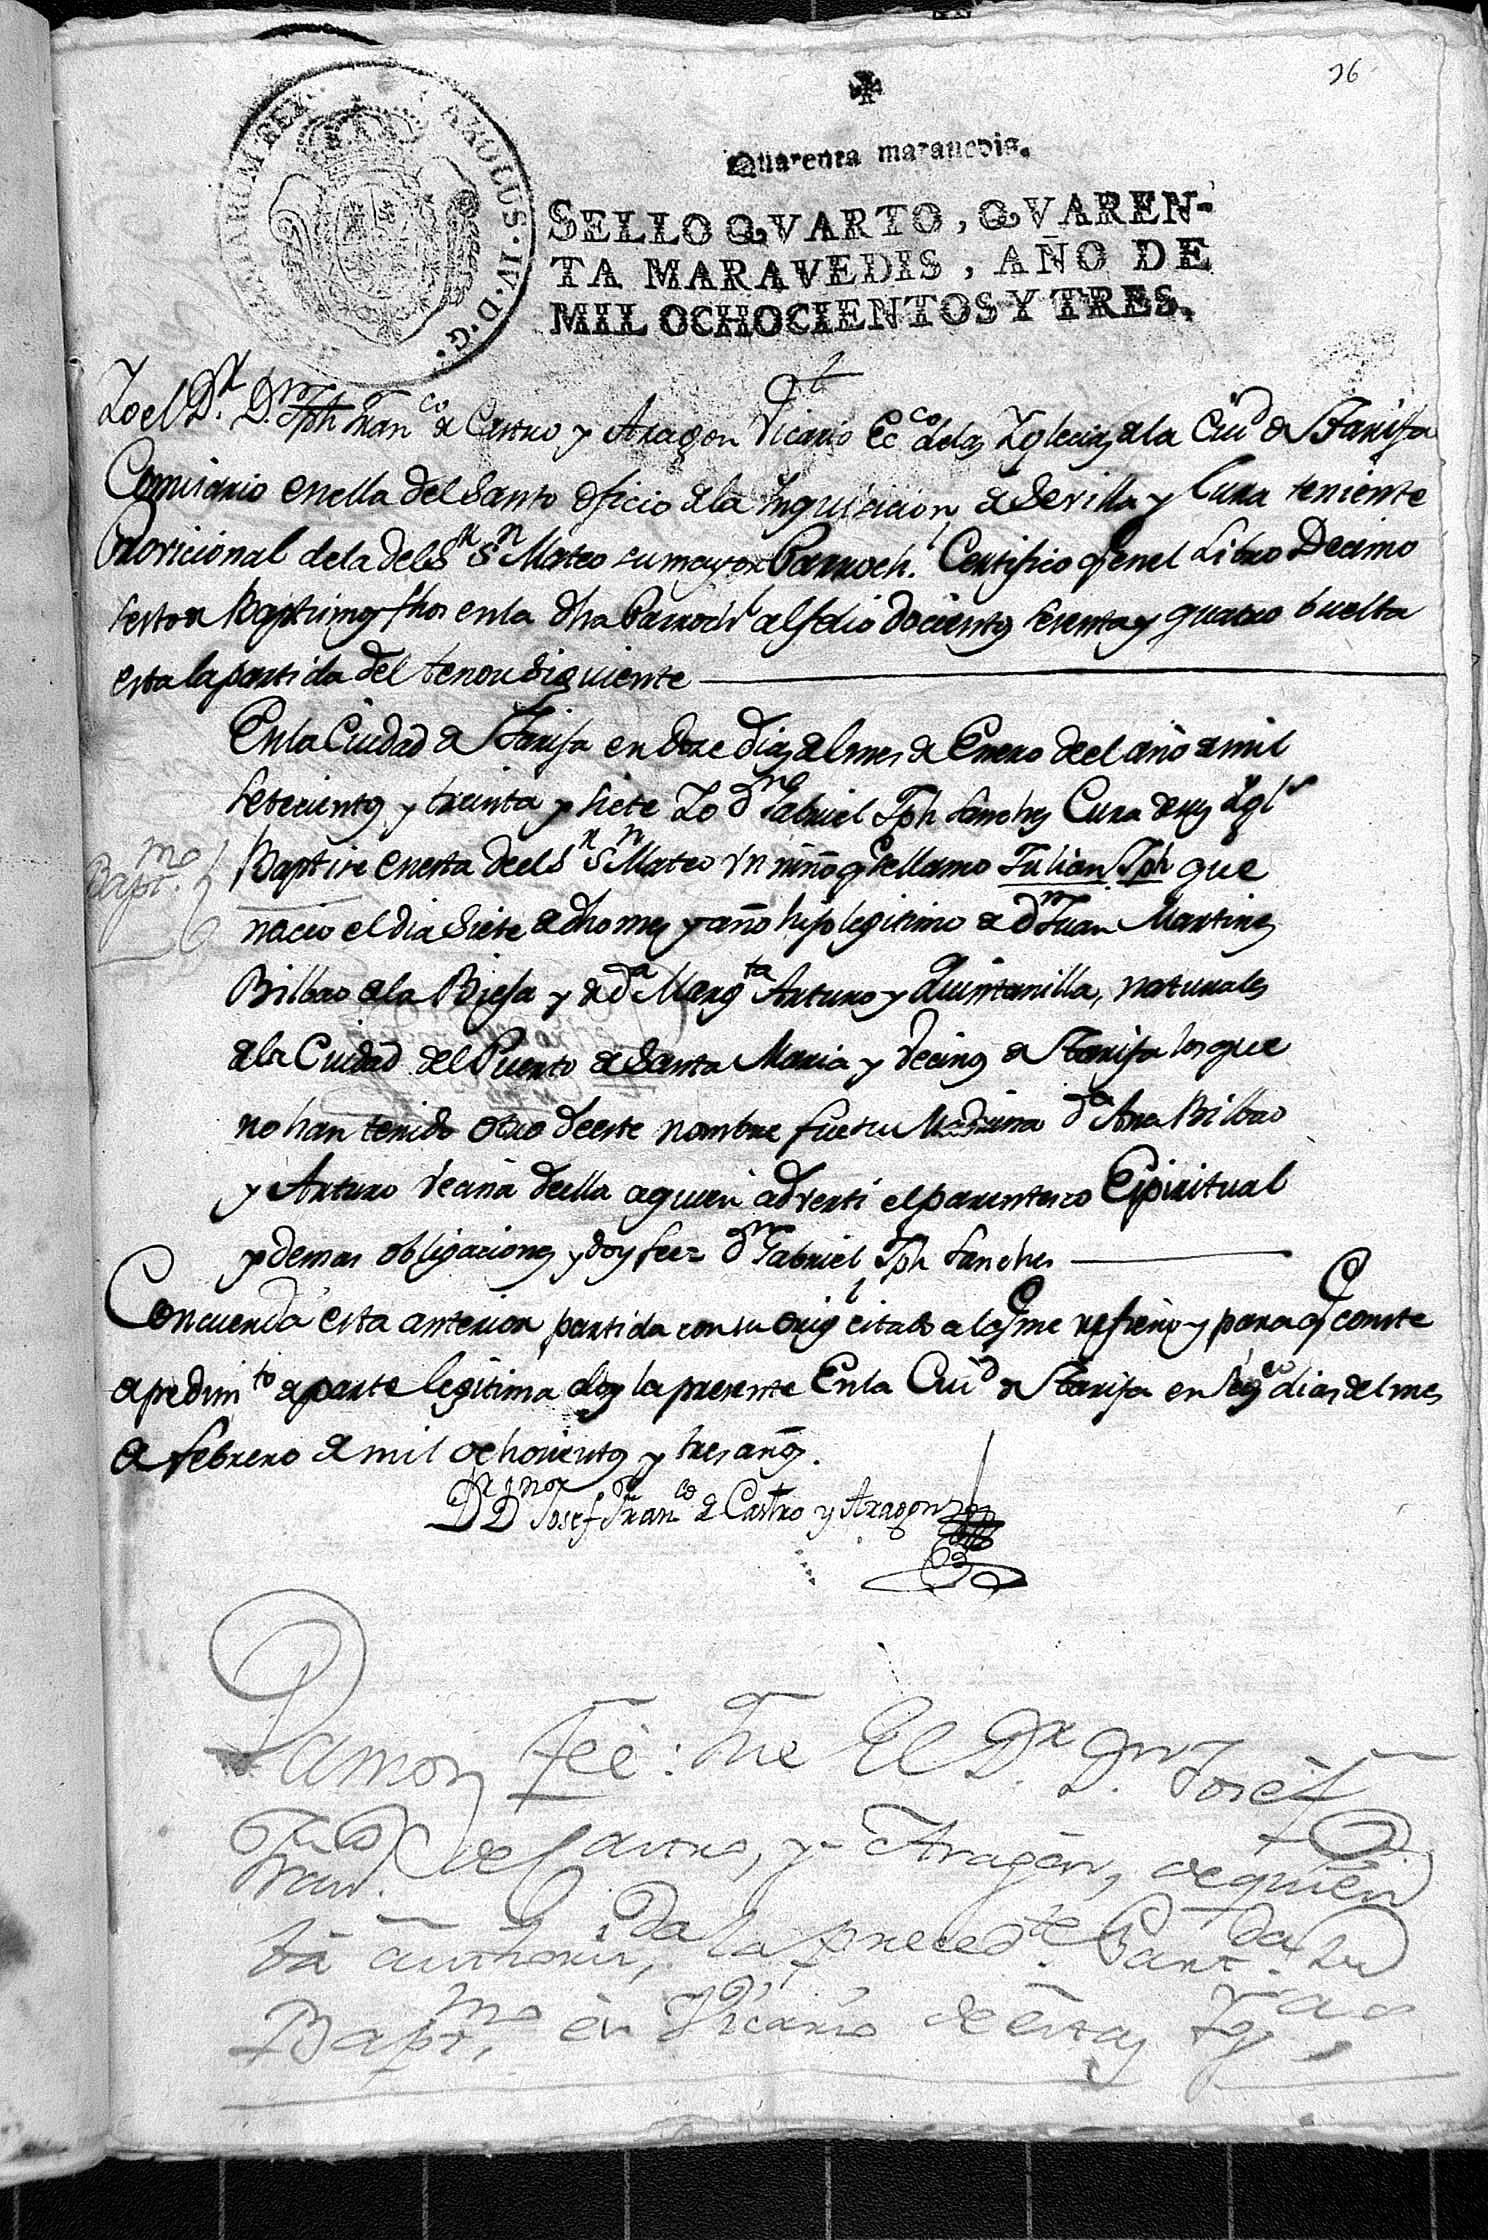 26
Quarenta maravedis.
HISPANIARUM REX. CAROLUS. IV. D. G.
SELLO QVARTO, QVAREN-
TA MARAVEDIS, AÑO DE
MIL OCHOCIENTOS Y TRES.
Yo el Dr. Dn. Jph Franco de Castro y Aragon Vicario Ecco delas Yglecias de la Ciud de Tarifa
Comisario en ella del Santo Oficio de la Inquisicion de Sevilla y Cura teniente
Provicional de la del Sr Sn Mateo su mayor Parrochl. Certifico q en el Libro Decimo
sesto de Baptismos fhos en la dha Parrochl al folio docientos secenta y quatro buelta
esta la partida del tenor siguiente
En la Ciudad de Tarifa en doze dias del mes de Enero de el año de mil
setecientos y treinta y siete Yo Dn Gabriel Jph Sanches Cura de sus Ygls
Baptmo
Baptise en esta de el Sr Sn Mateo Vn niño q se llamo Julian Jph que
nacio el dia siete de dho mes y año hijo legitimo de Dn Juan Martines
Bilbao de la Biesa y de Da Margta Arturo y Quintanilla, naturales
de la Ciudad del Puerto de Santa Maria y Vecinos de Tarifa los que
no han tenido otro de este nombre fue su Madrina Da Ana Bilbao
y Arturo Vecina de ella a quien adverti el parentesco Espiritual
y demas obligaciones y doy fee = Dn Gabriel Jph Sanches
Concuerda esta anterior partida con su origl citado a lo q me refiero y para q conste
a pedimto de parte legitima doy la presente En la Ciud de Tarifa en dias del mes
de Febrero de mil ochocientos y tres años.
Dr Dn Josef Franco de Castro y Aragon
Damos Feé: Que El Dr. Dn. Josef
Franco. de Castro, y Aragón, de quien
tá authorisda, la precedte. Partda. de
Baptmo, és Vicario de estas Yglas,